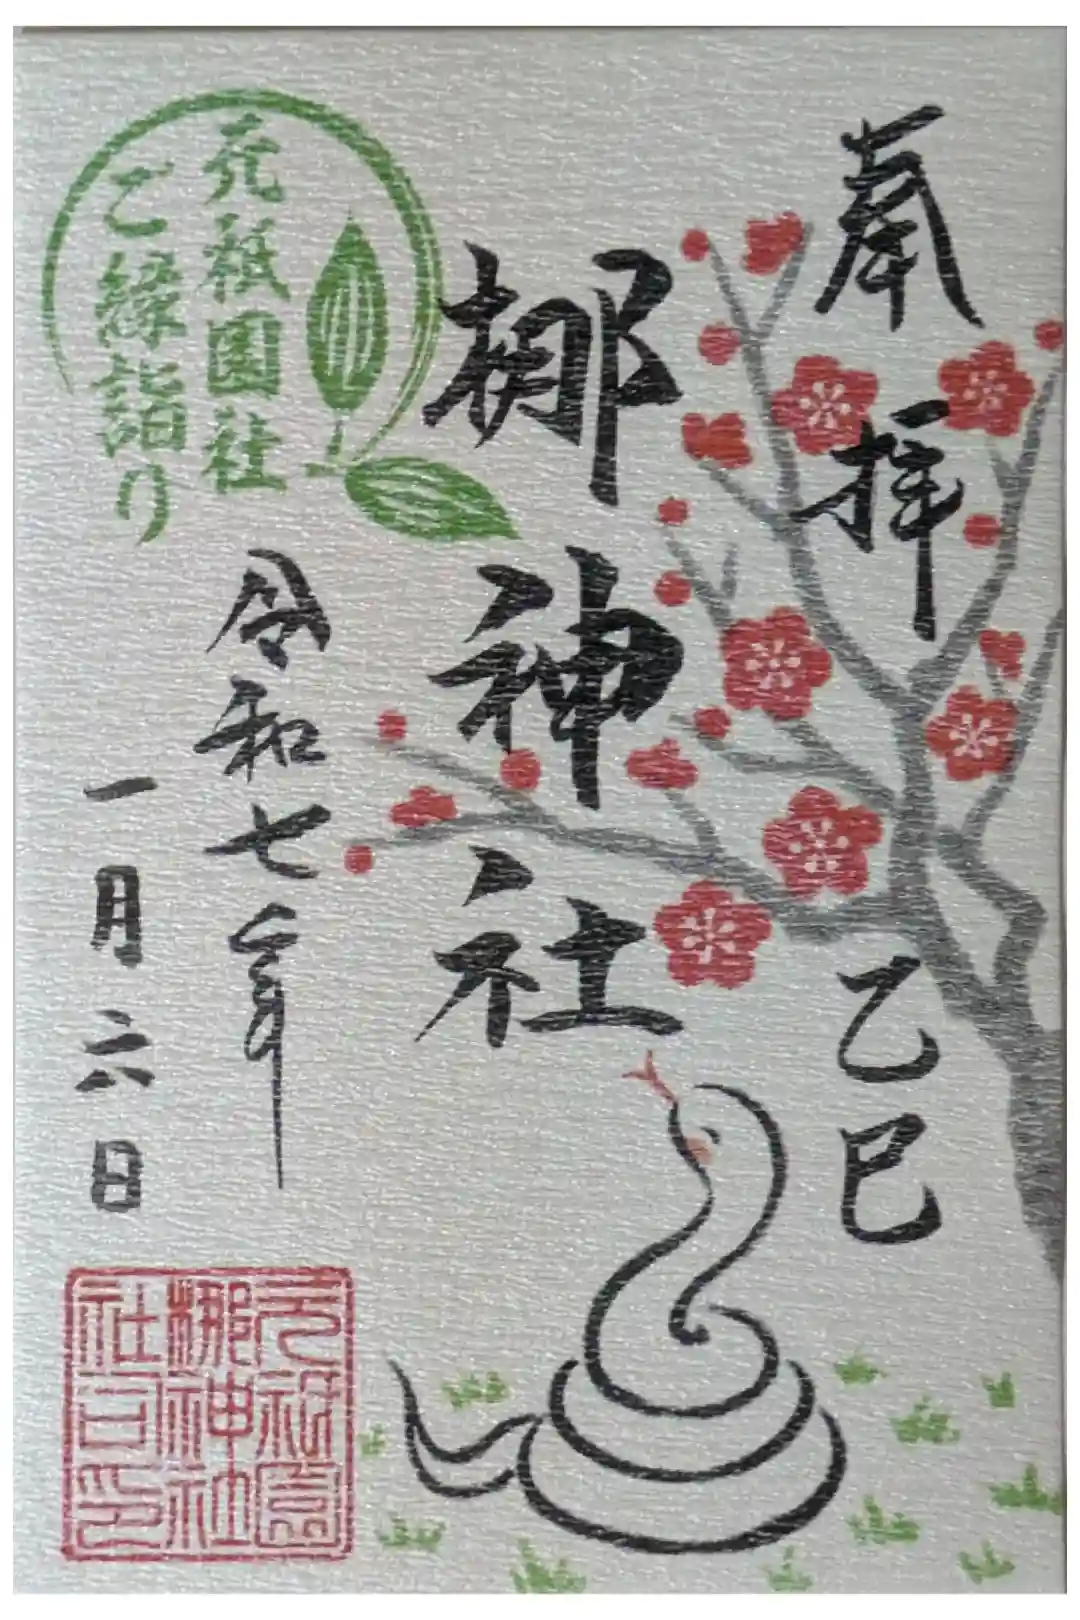 奉拝
乙巳
梛神社
元祇園社
ご縁詣り
令和七年
一月六日
元祇園
梛神社
社司印